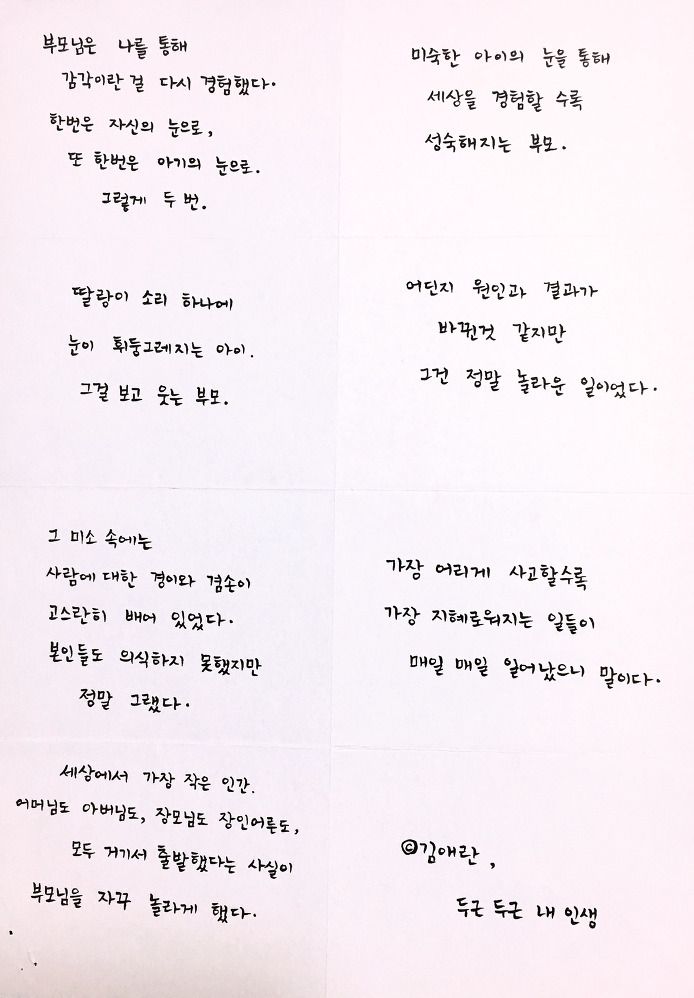 부모님은 나를 통해
감각이란 걸 다시 경험했다.
한번은 자신의 눈으로,
또 한번은 아기의 눈으로.
그렇게 두 번.
미숙한 아이의 눈을 통해
세상을 경험할 수록
성숙해지는 부모.
딸랑이 소리 하나에
눈이 휘둥그레지는 아이.
그걸 보고 웃는 부모.
어딘지 원인과 결과가
바뀐것 같지만
그건 정말 놀라운 일이었다.
그 미소 속에는
사람에 대한 경이와 겸손이
고스란히 배어 있었다.
본인들도 의식하지 못했지만
정말 그랬다.
가장 어리게 사고할수록
가장 지혜로워지는 일들이
매일 매일 일어났으니 말이다.
세상에서 가장 작은 인간.
어머님도 아버님도, 장모님도 장인어른도,
모두 거기서 출발했다는 사실이
부모님을 자꾸 놀라게 했다.
©김애란,
두근 두근 내 인생